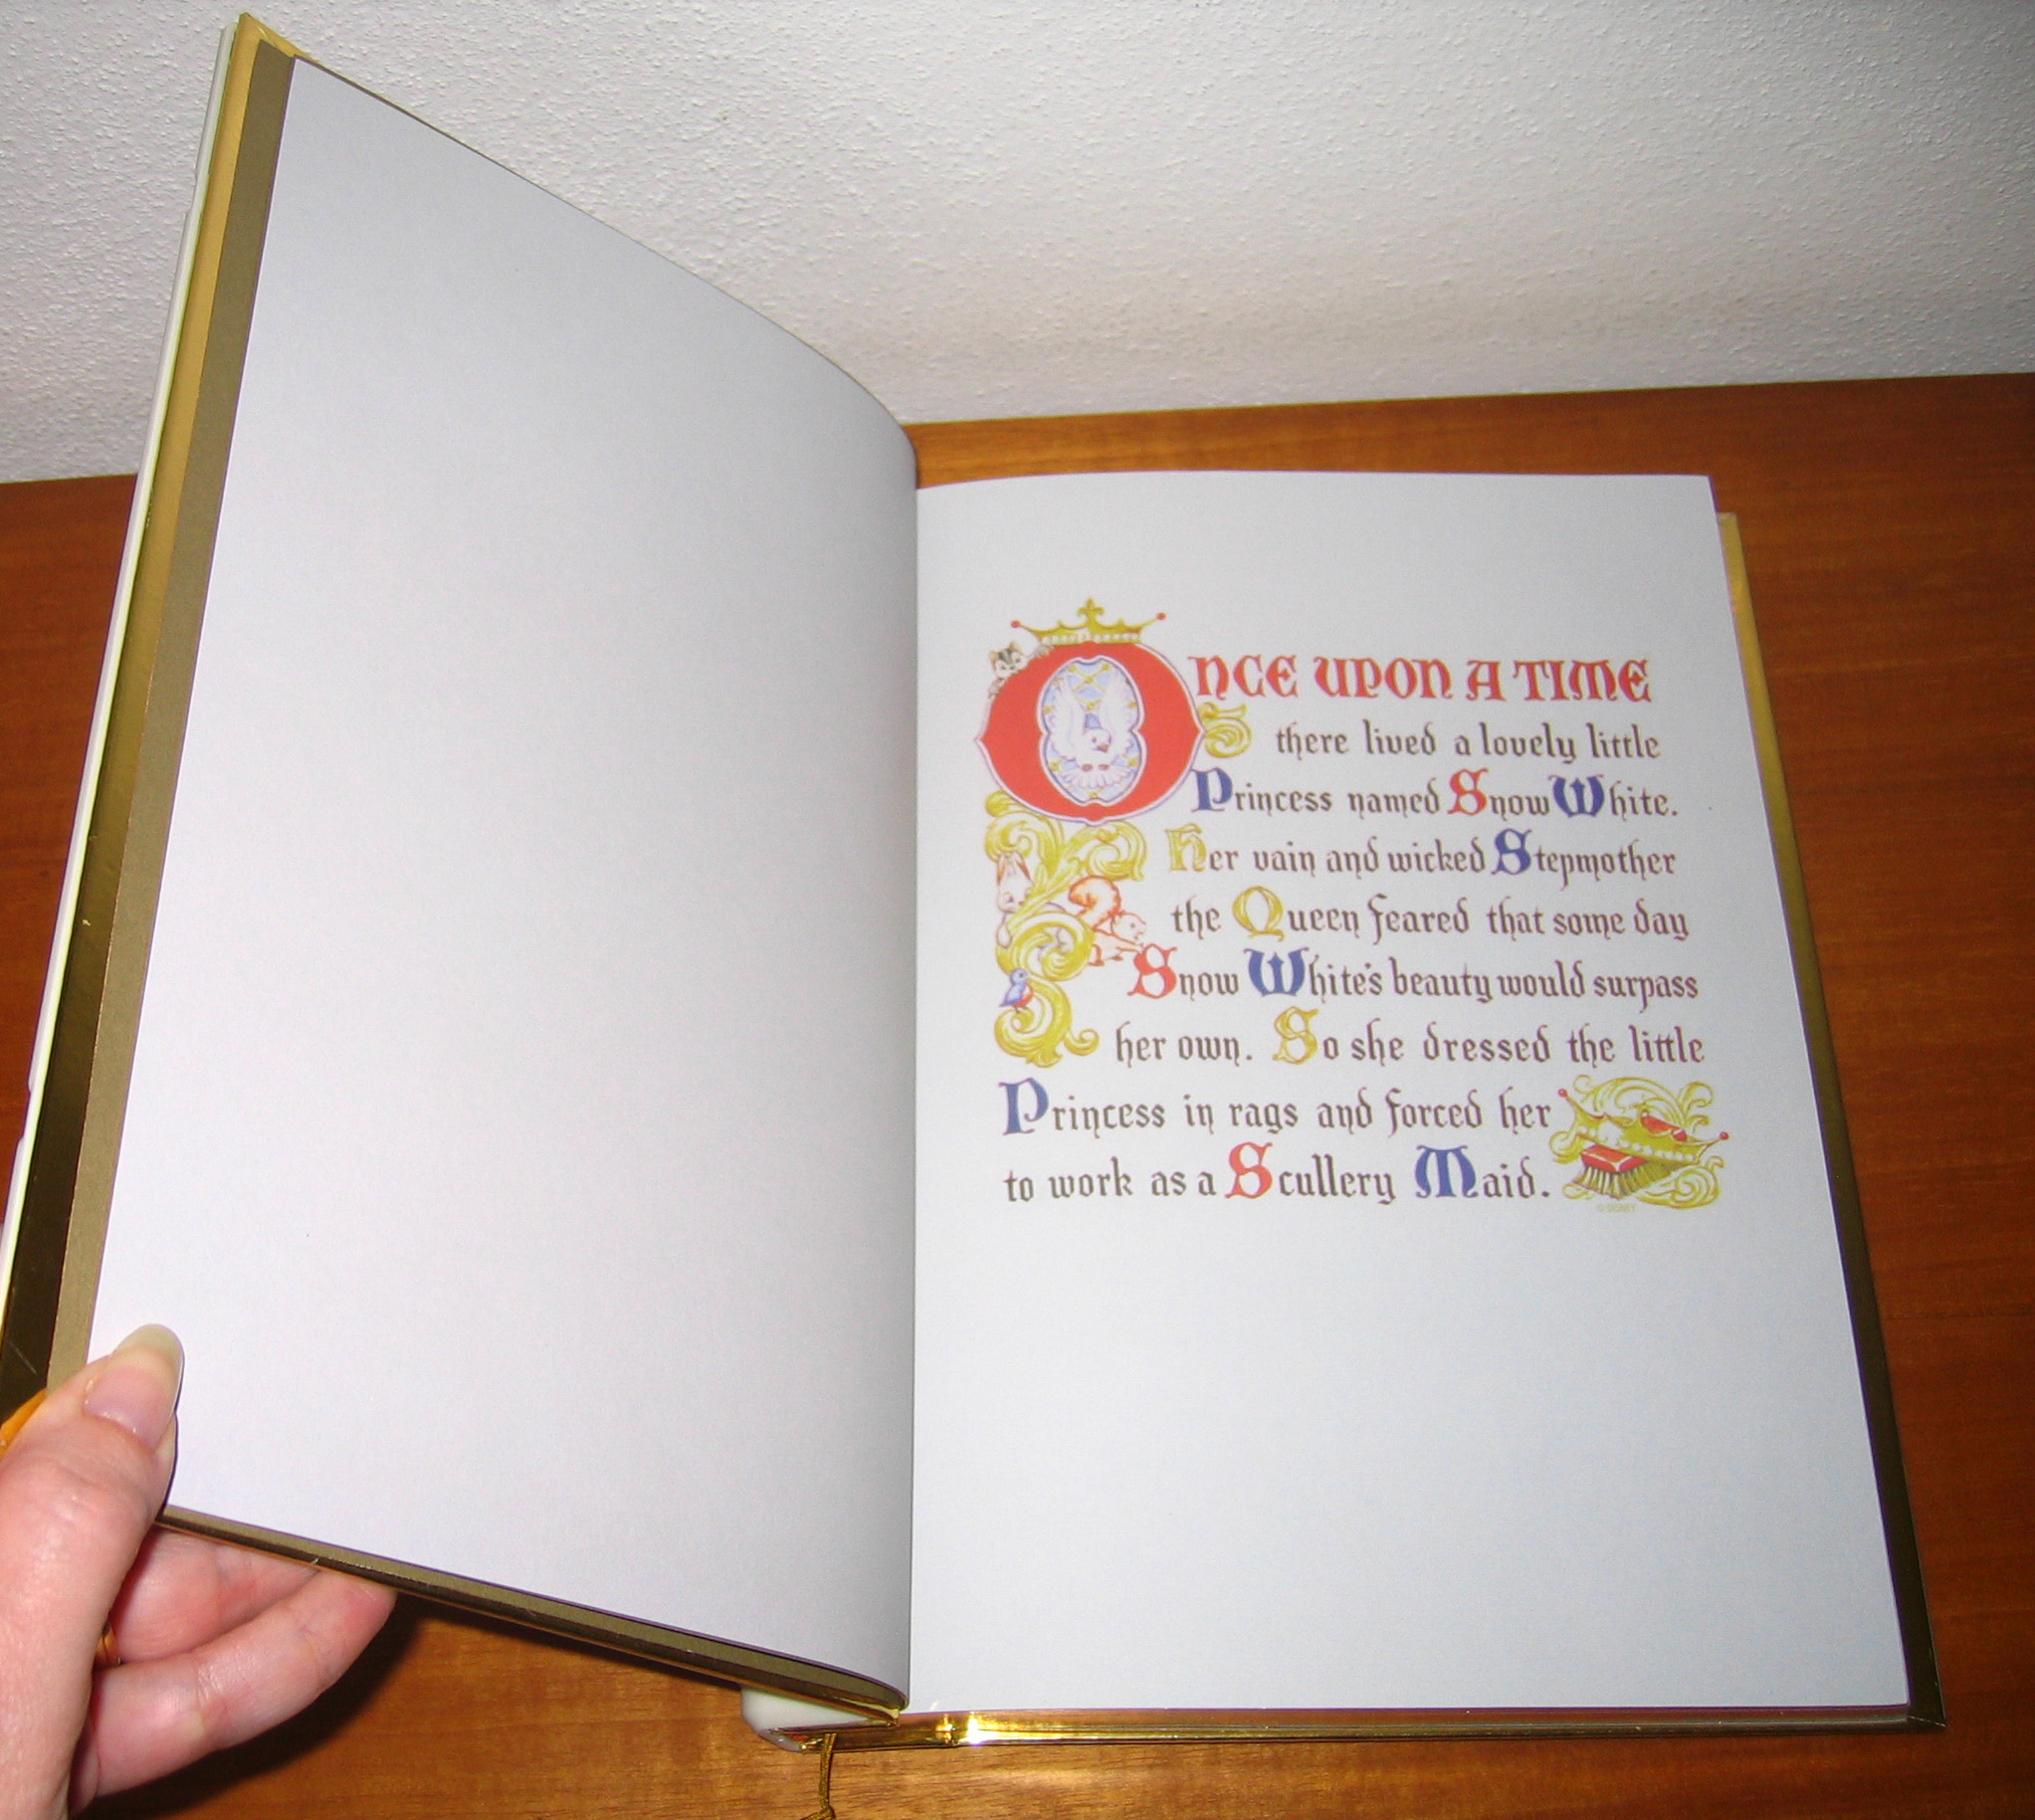 ONCE UPON A TIME
there lived a lovely little
Princess named Snow White.
Her vain and wicked Stepmother
the Queen feared that some day
Snow White's beauty would surpass
her own. So she dressed the little
Princess in rags and forced her
to work as a Scullery Maid.
© DISNEY